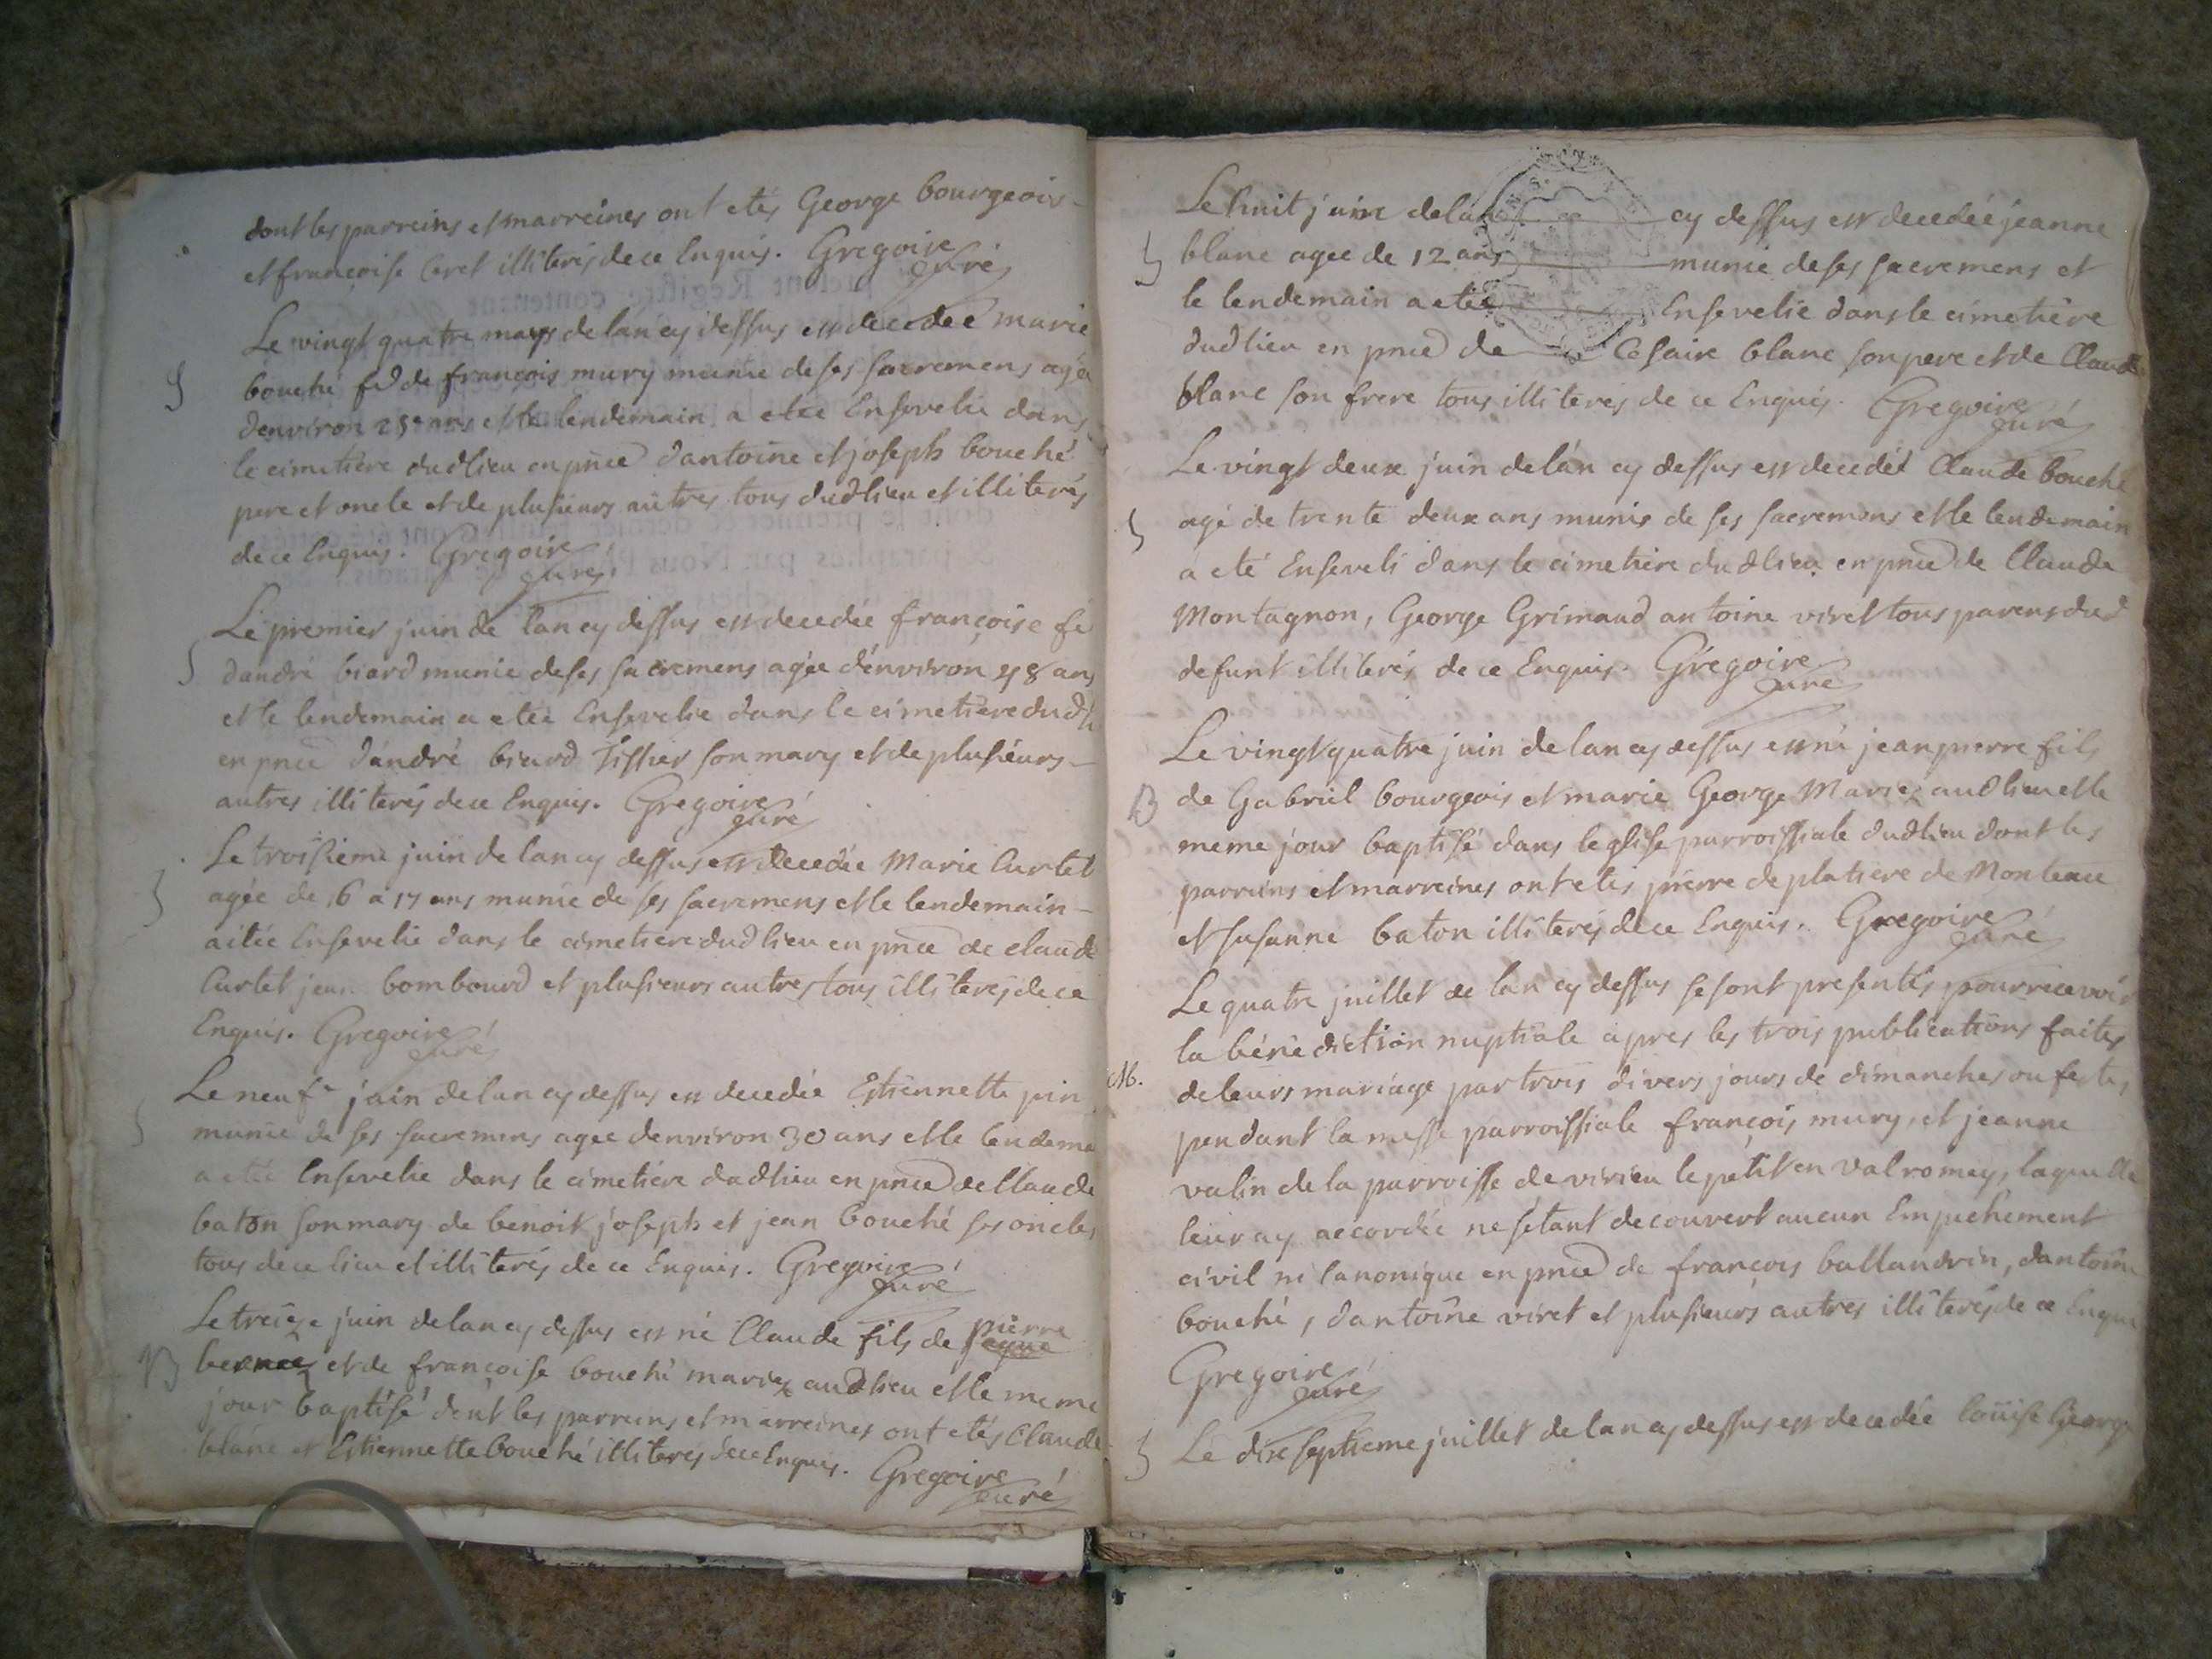 dont les parreins et marreines ont etés George bourgeois
et françoise Ceret illiterés de ce Enquis. Gregoire
curé
Le vingt quatre mays de lan cy dessus est decedeé marie
S
bouché fe de françois mury munie de ses sacremens agée
denviron 25 ans et le lendemain a etée Ensevelie dans
le cimetiére dudlieu en pnce dantoine et joseph bouché
pere et oncle et de plusieurs autres tous dudlieu et illiterés
de ce Enquis. Gregoire
curé
Le premier juin de lan cy dessus est decedée françoise fe
S
dandré biard munie de ses sacremens agée d'environ 48 ans
et le lendemain a etée Ensevelie dans le cimetiére dud
en pnce d'andré biard Tissier son mary et de plusieurs
autres illiterés de ce Enquis. Gregoire
curé
Le troisieme juin de lan cy dessus est decedée Marie Curtet
S
agée de 16 a 17 ans munie de ses sacremens et le lendemain
a etée Ensevelie dans le cimetiere dudlieu en pnce de claude
Curtet jean bombourd et plusieurs autres tous illiterés de ce
Enquis. Gregoire
curé
Le neufe juin de lan cy dessus est decedée Estiennette pin
S
munie de ses sacremens agee denviron 30 ans et le lendema
a etée Ensevelie dans le cimetiére dudlieu en pnce de Claude
baton son mary de benoit joseph et jean bouché ses oncles
tous de ce lieu et illiterés de ce Enquis. Gregoire
curé
Le treize juin de lan cy dessus est né Claude fils de pierre
B
et de françoise bouché mariez audlieu et le meme
jour baptisé dont les parreins et marreines ont etés Claude
blanc et Estiennette bouché illiterés de ce Enquis. Gregoire
curé
Le huit juin de lan cy dessus est decedée jeanne
S
blanc agee de 12 ans munie de ses sacremens et
le lendemain a etée Ensevelie dans le cimetiére
dudlieu en pnce de Cesaire blanc son pere et de Claude
blanc son frere tous illiterés de ce Enquis. Gregoire
curé
Le vingt deux juin de lan cy dessus est decedé Claude bouché
S
agé de trente deux ans munis de ses sacremens et le lendemain
a eté Enseveli dans le cimetiére dudlieu en pnce de Claude
Montagnon, George Grimaud antoine viret tous parens dud
defunt illiterés de ce Enquis. Gregoire
curé
Le vingt quatre juin de lan cy dessus est né jean pierre fils
B
de Gabriel bourgeois et marie George Mariez audlieu et le
meme jour baptisé dans leglise parroissiale dudlieu dont les
parreins et marreines ont etés pierre deplatiere de Monteau
et susanne baton illiterés de ce Enquis. Gregoire
curé
Le quatre juillet de lan cy dessus se sont presentés pour recevoir
la bénédiction nuptiale apres les trois publications faites
M.
de leurs mariage par trois divers jours de dimanches ou festes
pendant la messe parroissiale françois mury, et jeanne
valin de la parroisse de virieu le petit en valromey, laquelle
leur ay accordée ne s'etant decouvert aucun Empechement
civil ni Canonique en pnce de françois ballandrin, dantoine
bouché, dantoine viret et plusieurs autres illiterés de ce Enquis
Gregoire
curé
S
Le dixseptieme juillet de lan cy dessus est decedée loüise George